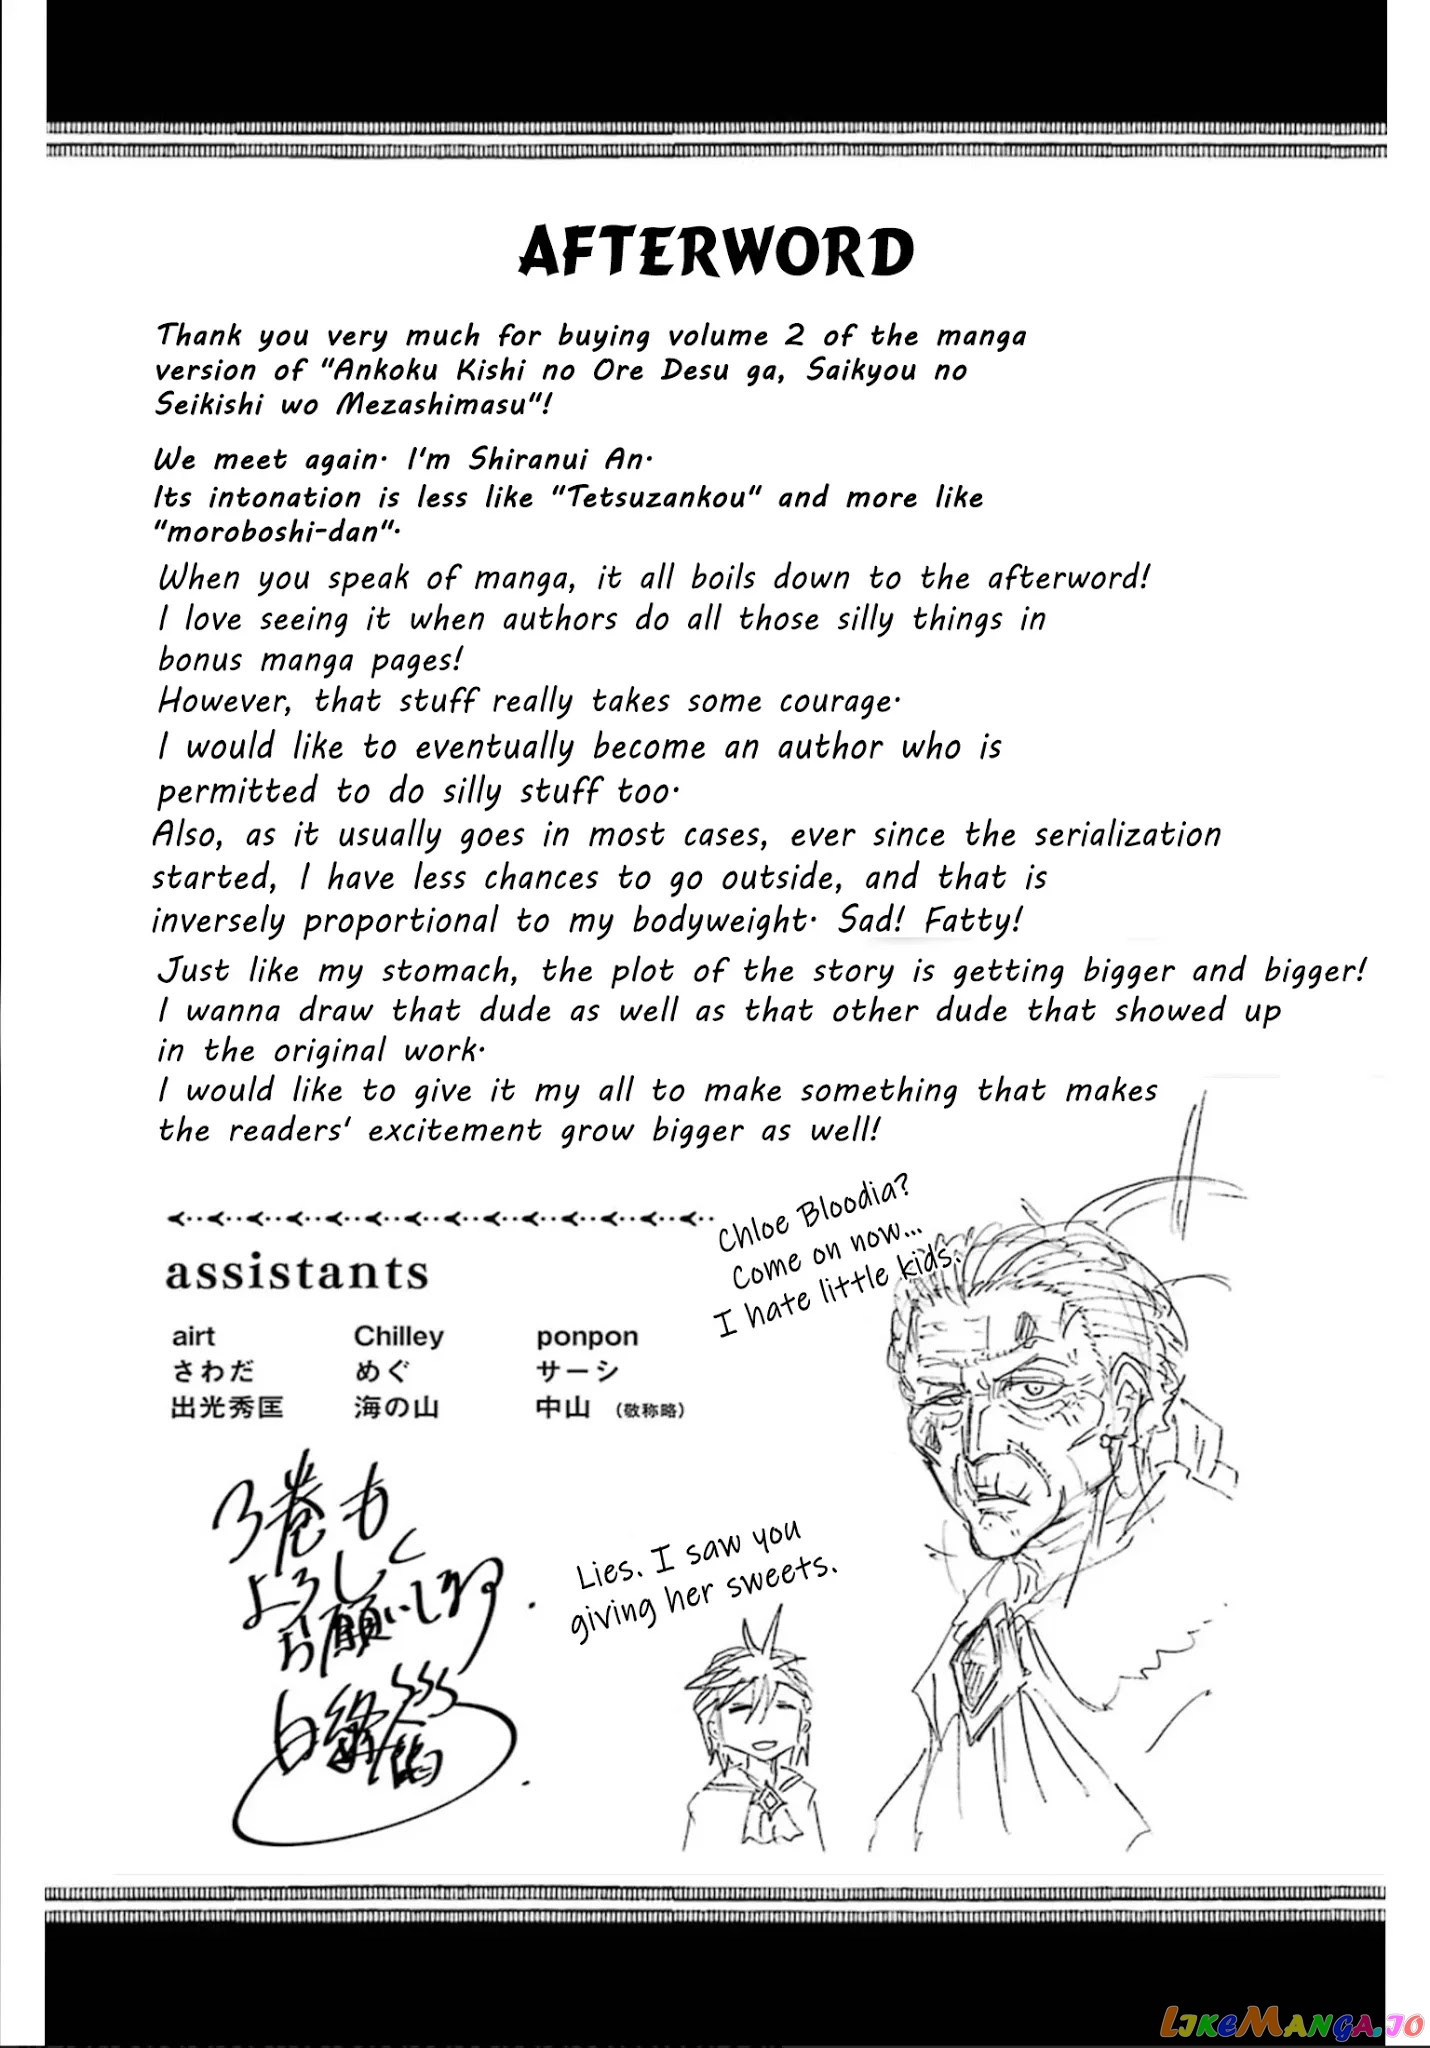 AFTERWORD
Thank you very much for buying volume 2 of the manga
version of "Ankoku Kishi no Ore Desu ga, Saikyou no
Seikishi wo Mezashimasu"!
We meet again. I'm Shiranui An.
Its intonation is less like "Tetsuzankou" and more like
"moroboshi-dan".
When you speak of manga, it all boils down to the afterword!
I love seeing it when authors do all those silly things in
bonus manga pages!
However, that stuff really takes some courage.
I would like to eventually become an author who is
permitted to do silly stuff too.
Also, as it usually goes in most cases, ever since the serialization
started, I have less chances to go outside, and that is
inversely proportional to my bodyweight. Sad! Fatty!
Just like my stomach, the plot of the story is getting bigger and bigger!
I wanna draw that dude as well as that other dude that showed up
in the original work.
I would like to give it my all to make something that makes
the readers' excitement grow bigger as well!
Chloe Bloodia?
Come on now...
I hate little kids.
assistants
airt Chilley ponpon
さわだ めぐ サーシ
出光秀匡 海の山 中山 (敬称略)
3巻も
よろしく
お願いします
Lies. I saw you
giving her sweets.
LIKEMANGA.IO